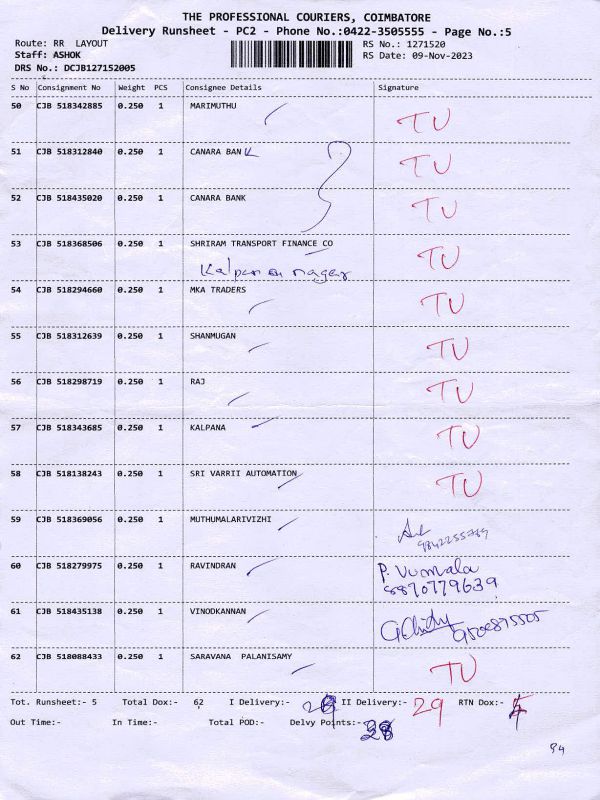 THE PROFESSIONAL COURIERS, COIMBATORE
Delivery Runsheet - PC2 - Phone No.:0422-3505555 - Page No.:5
Route: RR LAYOUT RS No.: 1271520
Staff: ASHOK RS Date: 09-Nov-2023
DRS No.: DCJB127152005
S No Consignment No Weight PCS Consignee Details Signature
50 CJB 518342885 0.250 1 MARIMUTHU TU
51 CJB 518312840 0.250 1 CANARA BANK TU
52 CJB 518435020 0.250 1 CANARA BANK TU
53 CJB 518368506 0.250 1 SHRIRAM TRANSPORT FINANCE CO TU
nagar
54 CJB 518294660 0.250 1 MKA TRADERS TU
55 CJB 518312639 0.250 1 SHANMUGAN TU
56 CJB 518298719 0.250 1 RAJ TU
57 CJB 518343685 0.250 1 KALPANA TU
58 CJB 518138243 0.250 1 SRI VARRII AUTOMATION TU
59 CJB 518369056 0.250 1 MUTHUMALARIVIZHI
9842255789
60 CJB 518279975 0.250 1 RAVINDRAN P. Vumala
8870779639
61 CJB 518435138 0.250 1 VINODKANNAN 9500875505
62 CJB 518088433 0.250 1 SARAVANA PALANISAMY TU
Tot. Runsheet:- 5 Total Dox:- 62 I Delivery:- II Delivery:- 29 RTN Dox:-
Out Time:- In Time:- Total POD:- Delvy Points:-
94